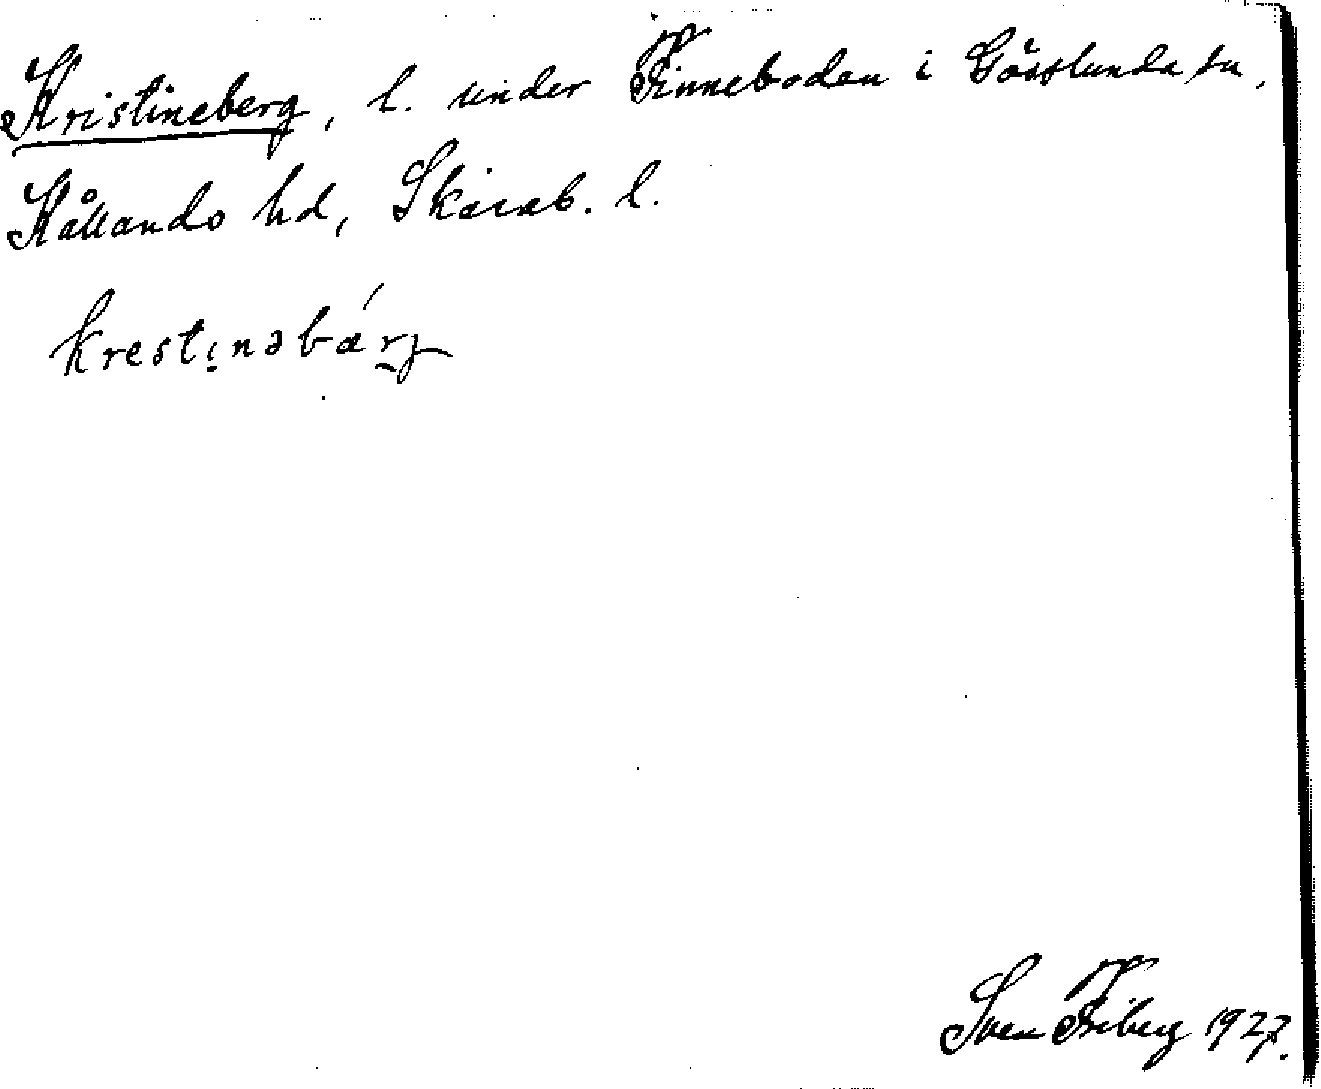 Kristineberg, l. under Finneboden i Gösslunda sn,
Kållands hd, Skarab. l.
krestinəbǽrj
Sven Friberg 1927.